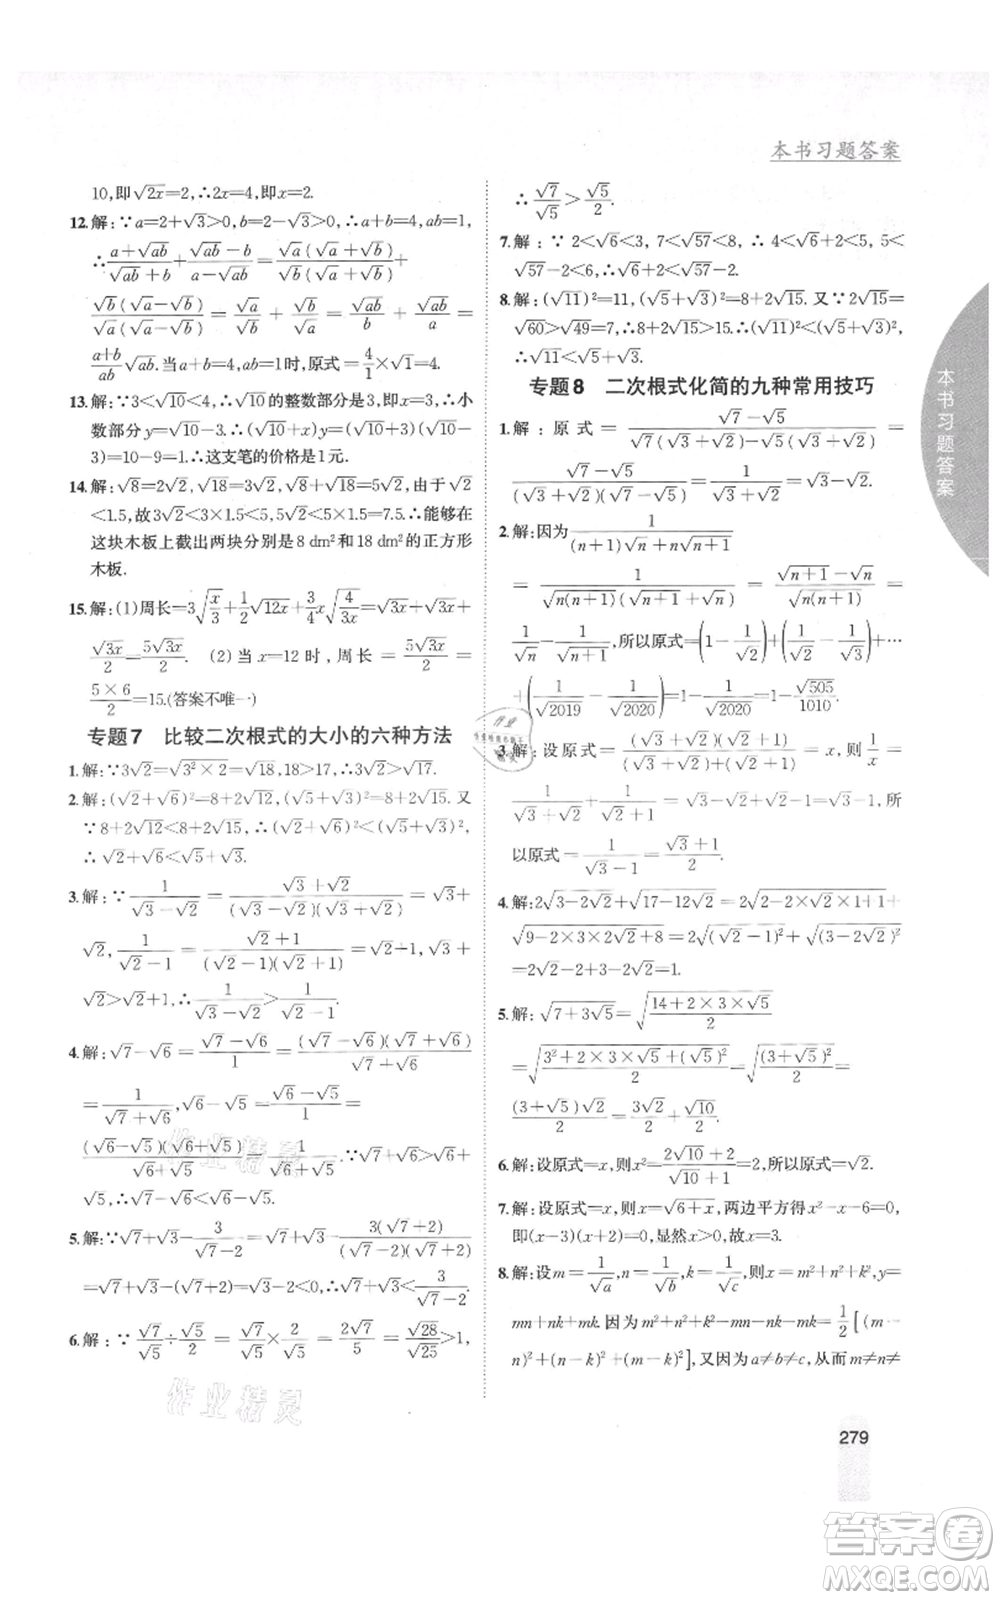 本书习题答案
10,即√(2x)=2,∴2x=4,∴x=2.
12.解:∵a=2+√3>0,b=2-√3>0,∴a+b=4,ab=1,
∴(a+√(ab))/(√(ab)+b)+(√(ab)-b)/(a-√(ab))=(√a(√a+√b))/(√b(√a+√b))+
(√b(√a-√b))/(√a(√a-√b))=√a/√b+√b/√a=√(ab)/b+√(ab)/a=
(a+b)/(ab)√(ab).当a+b=4,ab=1时,原式=4/1×√1=4.
13.解:∵3<√10<4,∴√10的整数部分是3,即x=3,小
数部分y=√10-3.∴(√10+x)y=(√10+3)(√10-
3)=10-9=1.∴这支笔的价格是1元.
14.解:√8=2√2,√18=3√2,√8+√18=5√2,由于√2
<1.5,故3√2<3×1.5=4.5<5,5√2<7.5.∴能够在
这块木板上截出两块分别是8 dm²和18 dm²的正方形
木板.
15.解:(1)周长=3√(x/3)+1/2√(12x)+3/4x√(4/(3x))=√(3x)+√(3x)+
√(3x)/2=5√(3x)/2. (2)当x=12时,周长=5√(3x)/2=
(5×6)/2=15.(答案不唯一)
专题7 比较二次根式的大小的六种方法
1.解:∵3√2=√(3²×2)=√18,18>17,∴3√2>√17.
2.解:(√2+√6)²=8+2√12,(√5+√3)²=8+2√15.又
∵8+2√12<8+2√15,∴(√2+√6)²<(√5+√3)²,
∴√2+√6<√5+√3.
3.解:∵1/(√3-√2)=(√3+√2)/((√3-√2)(√3+√2))=√3+
√2,1/(√2-1)=(√2+1)/((√2-1)(√2+1))=√2+1,√3+
√2>√2+1,∴1/(√3-√2)>1/(√2-1).
4.解:√7-√6=(√7-√6)/1=((√7-√6)(√7+√6))/(√7+√6)
=1/(√7+√6),√6-√5=(√6-√5)/1=
((√6-√5)(√6+√5))/(√6+√5)=1/(√6+√5).∵√7+√6>√6+
√5,∴√7-√6<√6-√5.
5.解:∵√7+√3-3/(√7-2)=√7+√3-(3(√7+2))/((√7-2)(√7+2))
=√7+√3-(√7+2)=√3-2<0,∴√7+√3<3/(√7-2).
6.解:∵√7/√5÷√5/2=√7/√5×2/√5=2√7/5=√28/√25>1,
∴√7/√5>√5/2.
7.解:∵2<√6<3,7<√57<8,∴4<√6+2<5,5<
√57-2<6,∴√6+2<√57-2.
8.解:(√11)²=11,(√15-√4)... 
专题8 二次根式化简的九种常用技巧
1.解:原式=(√7-√5)/(√7(√3+√2)-√5(√3+√2))=
(√7-√5)/((√3+√2)(√7-√5))=1/(√3+√2)=√3-√2.
2.解:因为1/((n+1)√n+n√(n+1))
=1/(√(n(n+1))(√(n+1)+√n))=(√(n+1)-√n)/(√(n+1)×√n)=
1/√n-1/√(n+1),所以原式=(1-1/√2)+(1/√2-1/√3)+…
+(1/√2019-1/√2020)=1-1/√2020=1-√505/1010.
3.解:设原式=x,则1/x=
1/(√3+√2)+1/(√2+1)=√3-√2+√2-1=√3-1,所
以原式=1/(√3-1)=(√3+1)/2.
4.解:2√(3-2√2)+√(17-12√2)=2√(1-2√2+2)+
√(9-2×3×2√2+8)=2√((√2-1)²)+√((3-2√2)²)
=2√2-2+3-2√2=1.
5.解:√(7+3√5)=√((14+2×3×√5)/2)=
√((3²+2×3×√5+(√5)²)/2)=√((3+√5)²/2)=
((3+√5)√2)/2=3√2/2+√10/2.
6.解:设原式=x,则x²=(2√10+2)/(√10+1)=2,所以原式=√2.
7.解:设原式=x,则x=√(6+x),两边平方得x²-x-6=0,
即(x-3)(x+2)=0,显然x>0,故x=3.
8.解:设m=1/√a,n=1/√b,k=1/√c,则x=m²+n²+k²,y=
mn+nk+mk.因为m²+n²+k²-mn-nk-mk=1/2[(m-
n)²+(n-k)²+(m-k)²],又因为a≠b≠c,从而m≠n≠
本书习题答案
279
作业精灵
作业精灵
答案卷